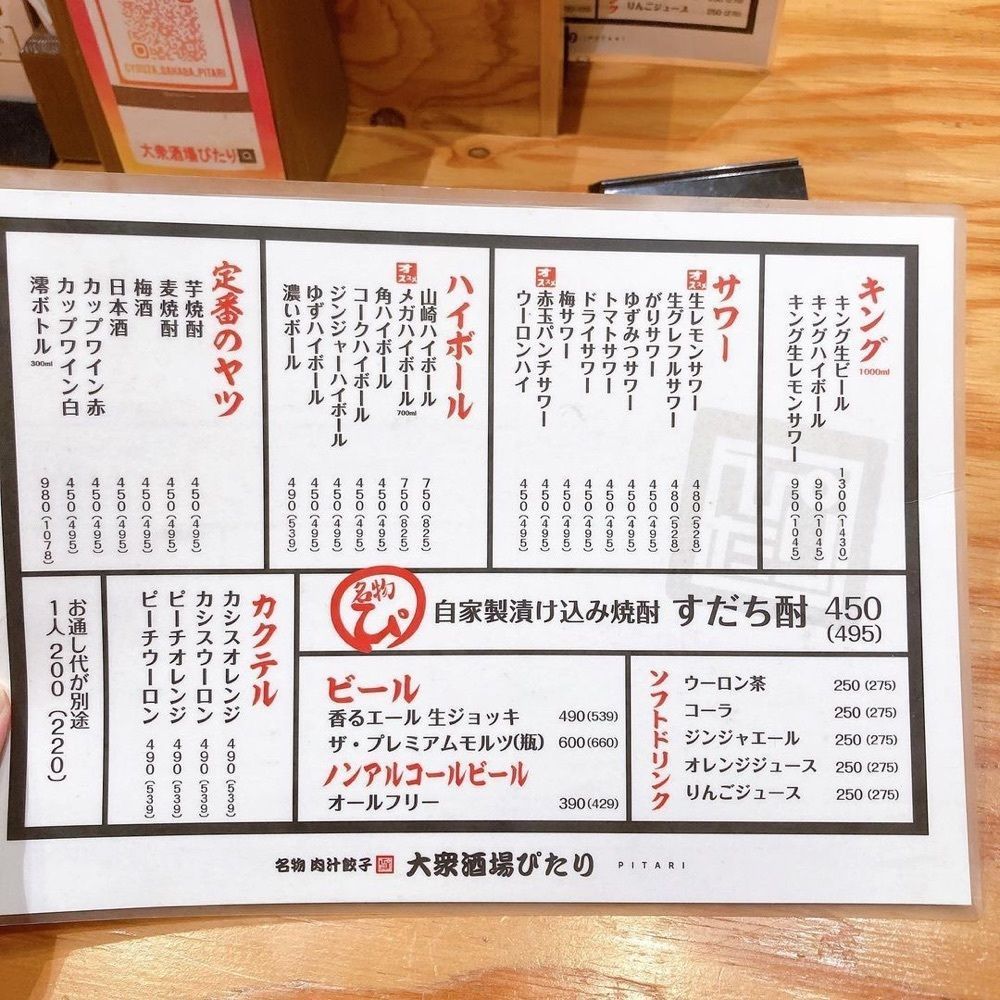 CYOUZA_SAKABA_PITARI
大衆酒場ぴたり
りんごジュース 250(275)
PITARI
キング 1000ml
キング生ビール 1300(1430)
キングハイボール 950(1045)
キング生レモンサワー 950(1045)
サワー
オススメ 生レモンサワー 480(528)
生グレフルサワー 480(528)
がりサワー 450(495)
ゆずみつサワー 450(495)
トマトサワー 450(495)
ドライサワー 450(495)
梅サワー 450(495)
オススメ 赤玉パンチサワー 450(495)
ウーロンハイ 450(495)
ハイボール
山崎ハイボール 750(825)
オススメ メガハイボール 700ml 750(825)
角ハイボール 450(495)
コークハイボール 450(495)
ジンジャーハイボール 450(495)
ゆずハイボール 450(495)
濃いボール 490(539)
定番のヤツ
芋焼酎 450(495)
麦焼酎 450(495)
梅酒 450(495)
日本酒 450(495)
カップワイン赤 450(495)
カップワイン白 450(495)
澪ボトル 300ml 980(1078)
名物 ぴ 自家製漬け込み焼酎 すだち酎 450
(495)
ソフトドリンク
ウーロン茶 250(275)
コーラ 250(275)
ジンジャエール 250(275)
オレンジジュース 250(275)
りんごジュース 250(275)
ビール
香るエール 生ジョッキ 490(539)
ザ・プレミアムモルツ(瓶) 600(660)
ノンアルコールビール
オールフリー 390(429)
カクテル
カシスオレンジ 490(539)
カシスウーロン 490(539)
ピーチオレンジ 490(539)
ピーチウーロン 490(539)
お通し代が別途
1人200(220)
名物 肉汁餃子 大衆酒場ぴたり PITARI